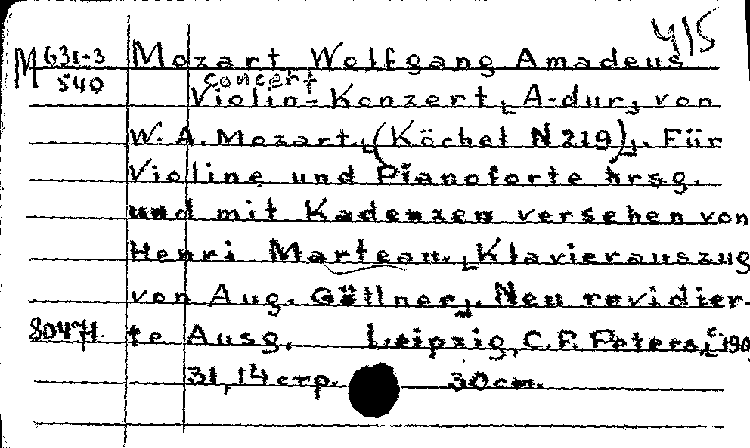 415
M 631-3
540
Mozart, Wolfgang Amadeus
concert
Violin-Konzert, A-dur, von
W. A. Mozart, (Köchel N 219). Für
Violine und Pianoforte hrsg.
und mit Kadenzen versehen von
Henri Marteau. Klavierauszug
von Aug. Göllner. Neu revidier-
80471. te Ausg. Leipzig, C. F. Peters,
31, 14 стр. 30 cm.